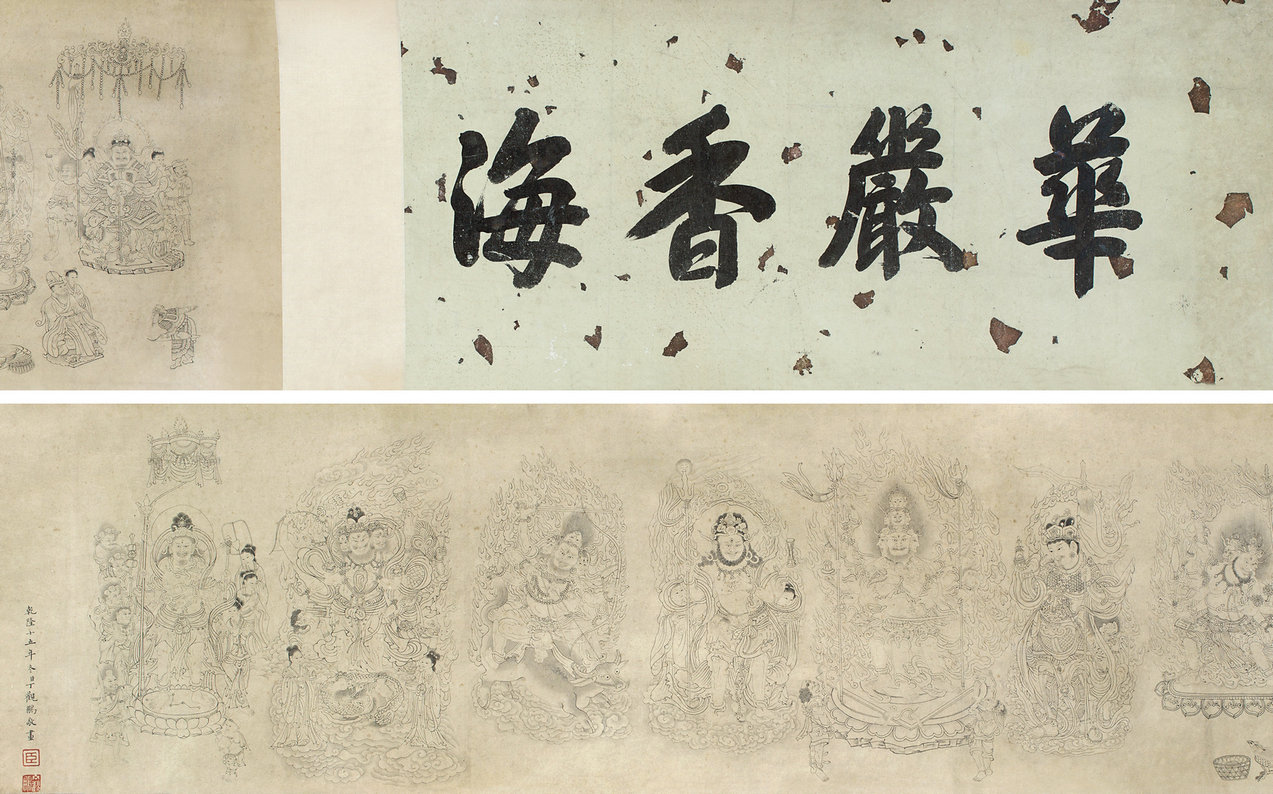 華嚴香海
乾隆十五年冬日丁觀鵬敬畫
臣